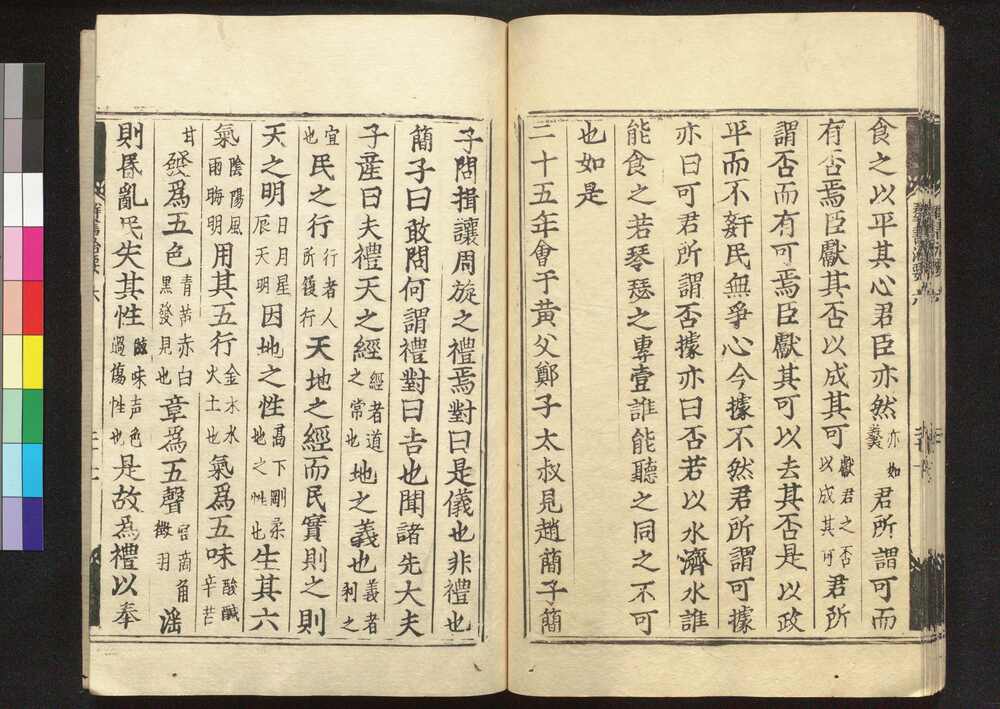 食之以平其心君臣亦然亦如羹君所謂可而
有否焉臣獻其否以成其可獻君之否以成其可君所
謂否而有可焉臣獻其可以去其否是以政
平而不奸民無爭心今據不然君所謂可據
亦曰可君所謂否據亦曰否若以水濟水誰
能食之若琴瑟之專壹誰能聽之同之不可
也如是
二十五年會于黃父鄭子太叔見趙簡子簡
子問揖讓周旋之禮焉對曰是儀也非禮也
簡子曰敢問何謂禮對曰吉也聞諸先大夫
子產曰夫禮天之經經者道之常也地之義也義者利之
宜也民之行行者人所履行天地之經而民實則之則
天之明日月星辰天明因地之性高下剛柔地之性也生其六
氣陰陽風雨晦明用其五行金木水火土也氣爲五味酸鹹辛苦
甘發爲五色青黃赤白黑發見也章爲五聲宮商角徵羽淫
則昬亂民失其性滋味声色過傷性也是故爲禮以奉